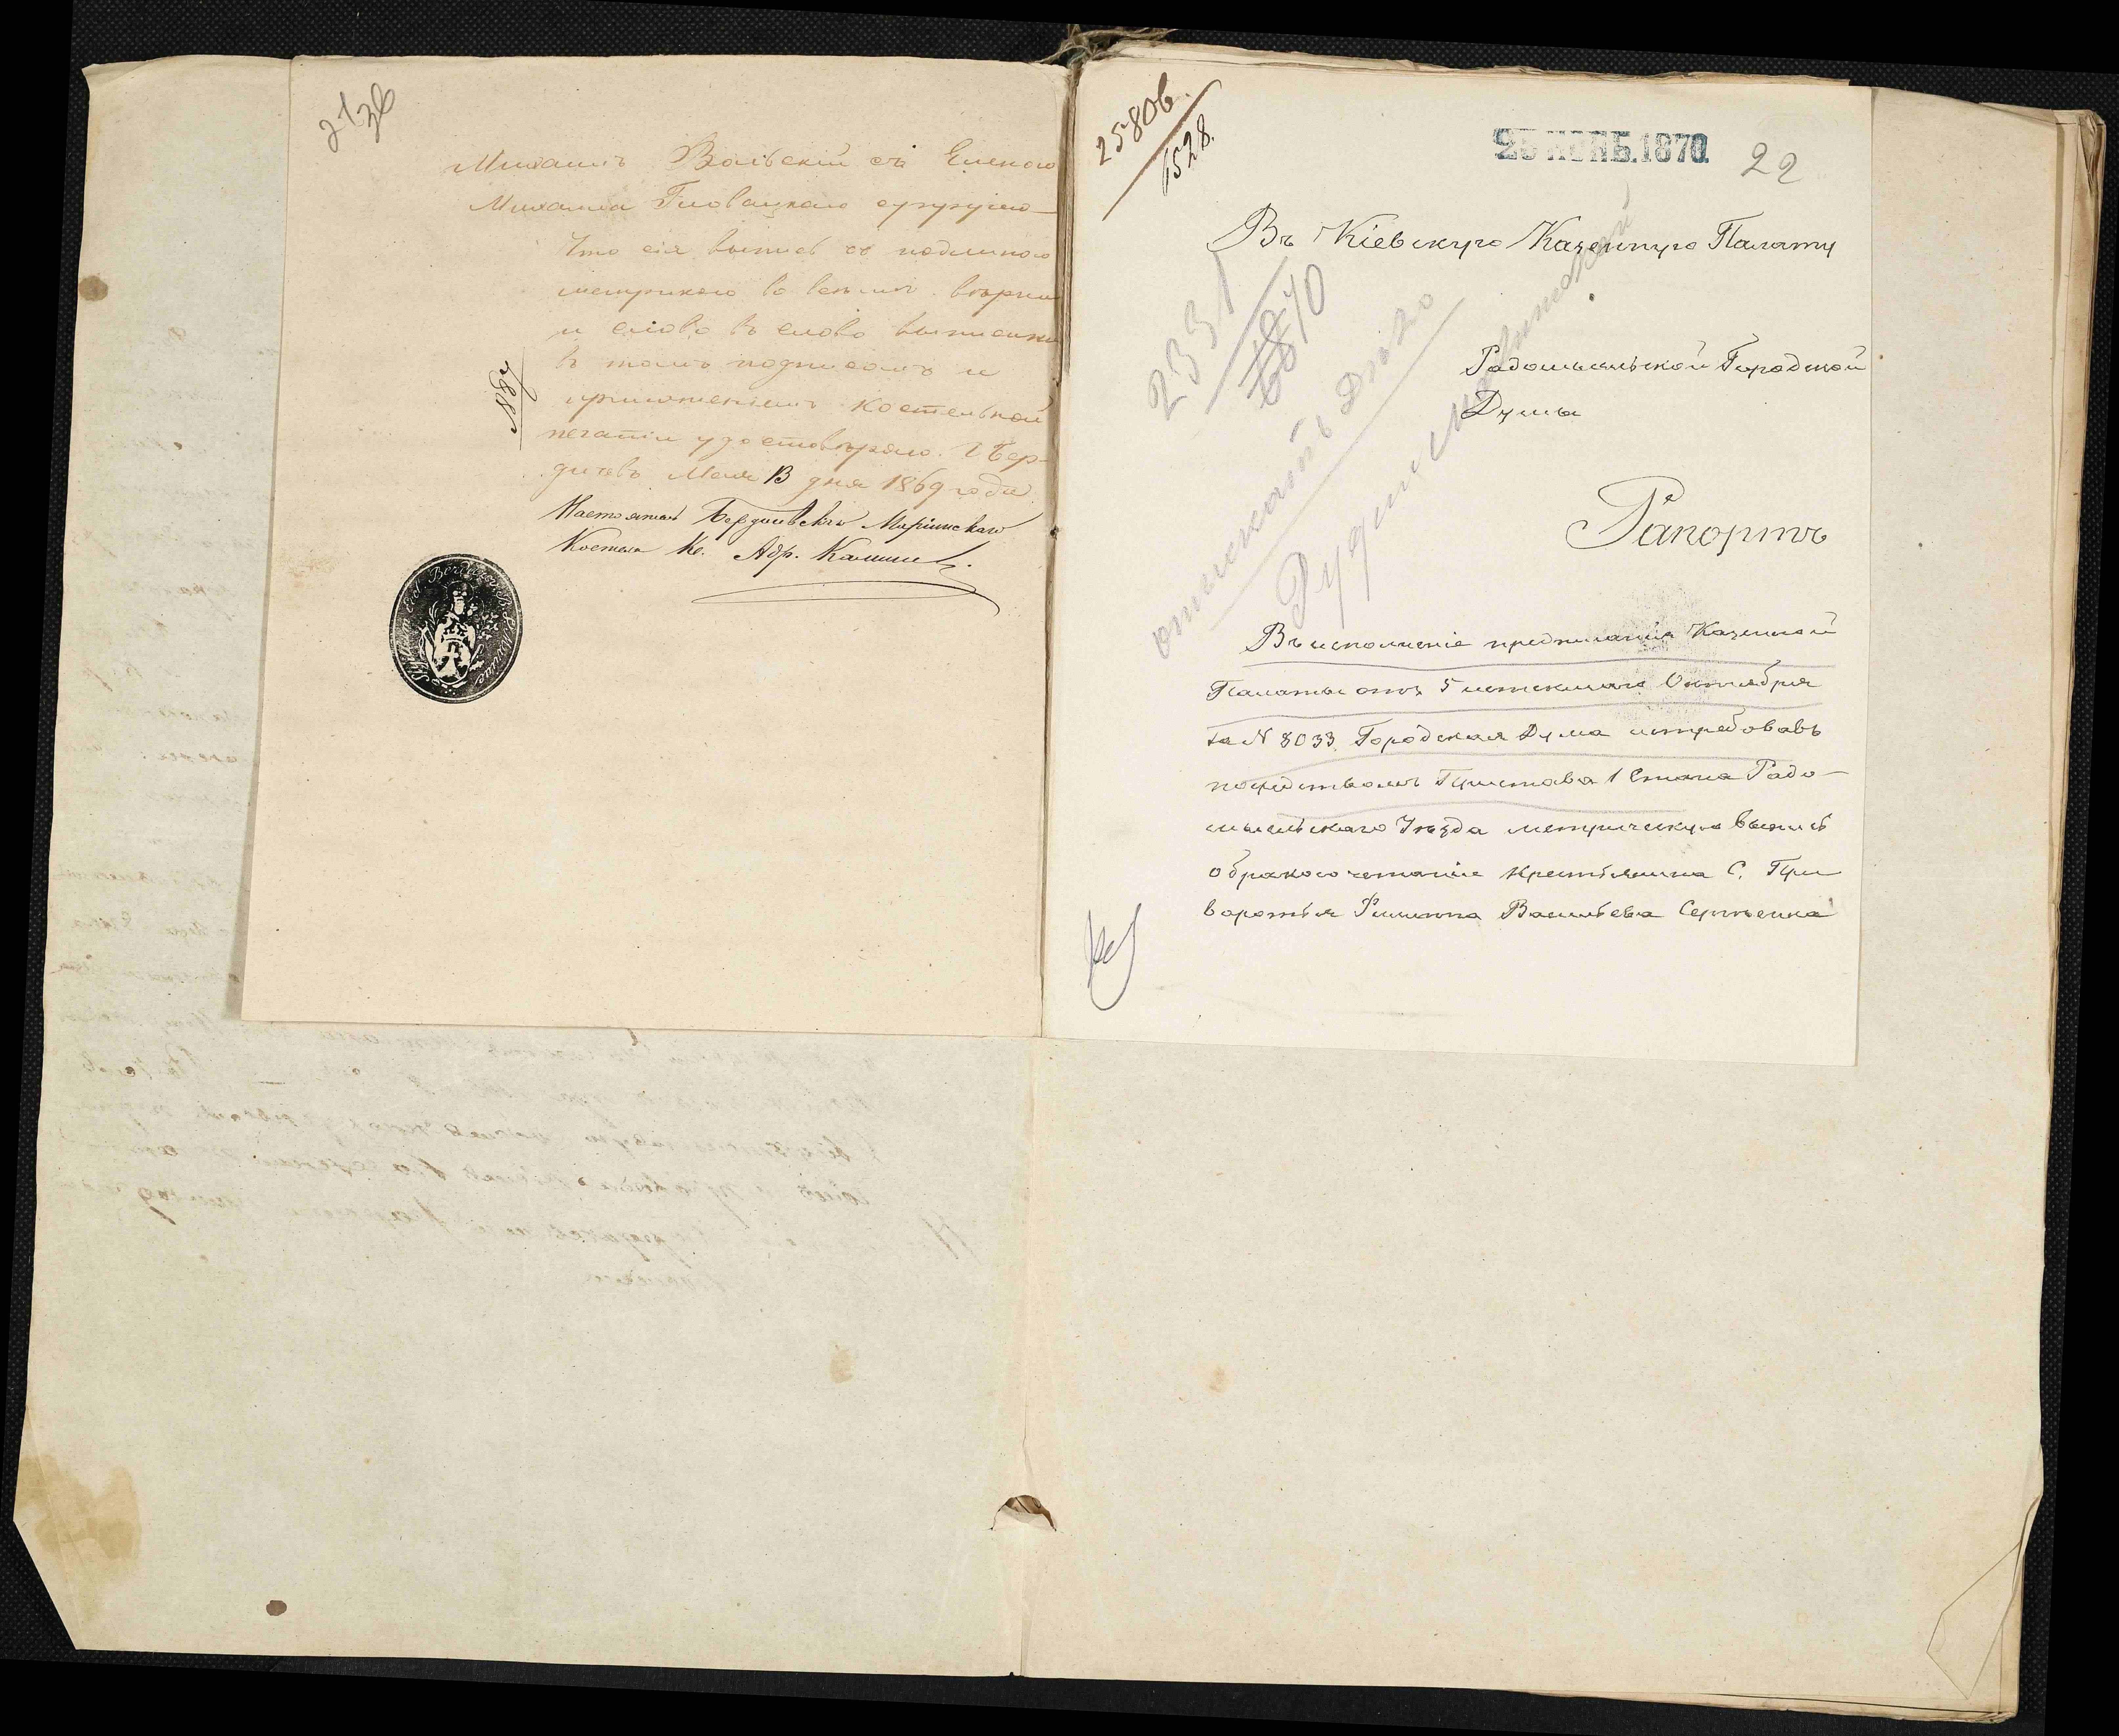 Михаилъ Вольскій съ Еленою
Михаила Гловацкаго супругою
Что сія выпись съ подлиною
метрикою во всемъ вѣрна
и слово въ слово выписана
въ томъ подписомъ и
приложеніемъ костельной
печати удостовѣряю. Г. Бер-
дичевъ Мая 13 дня 1869 года
Настоятель Бердичевскаго Маріинскаго
Костела Кс. Адр.
№ 887
25806
1528.
25 НОЯБ. 1870
22
Въ Кіевскую Казенную Палату
Радомысльской Городской
Думы
Рапортъ
2331
отыскать Дѣло
Въ исполненіе предписанія Казенной
Палаты отъ 5 истекшаго Октября
за N 8033. Городская Дума истребовавъ
посредствомъ Пристава 1 Стана Радо-
мысльскаго Уѣзда метрическую выпись
о бракосочетаніи крестьянина С. При
воротья Филиппа Васильева Сергѣенка